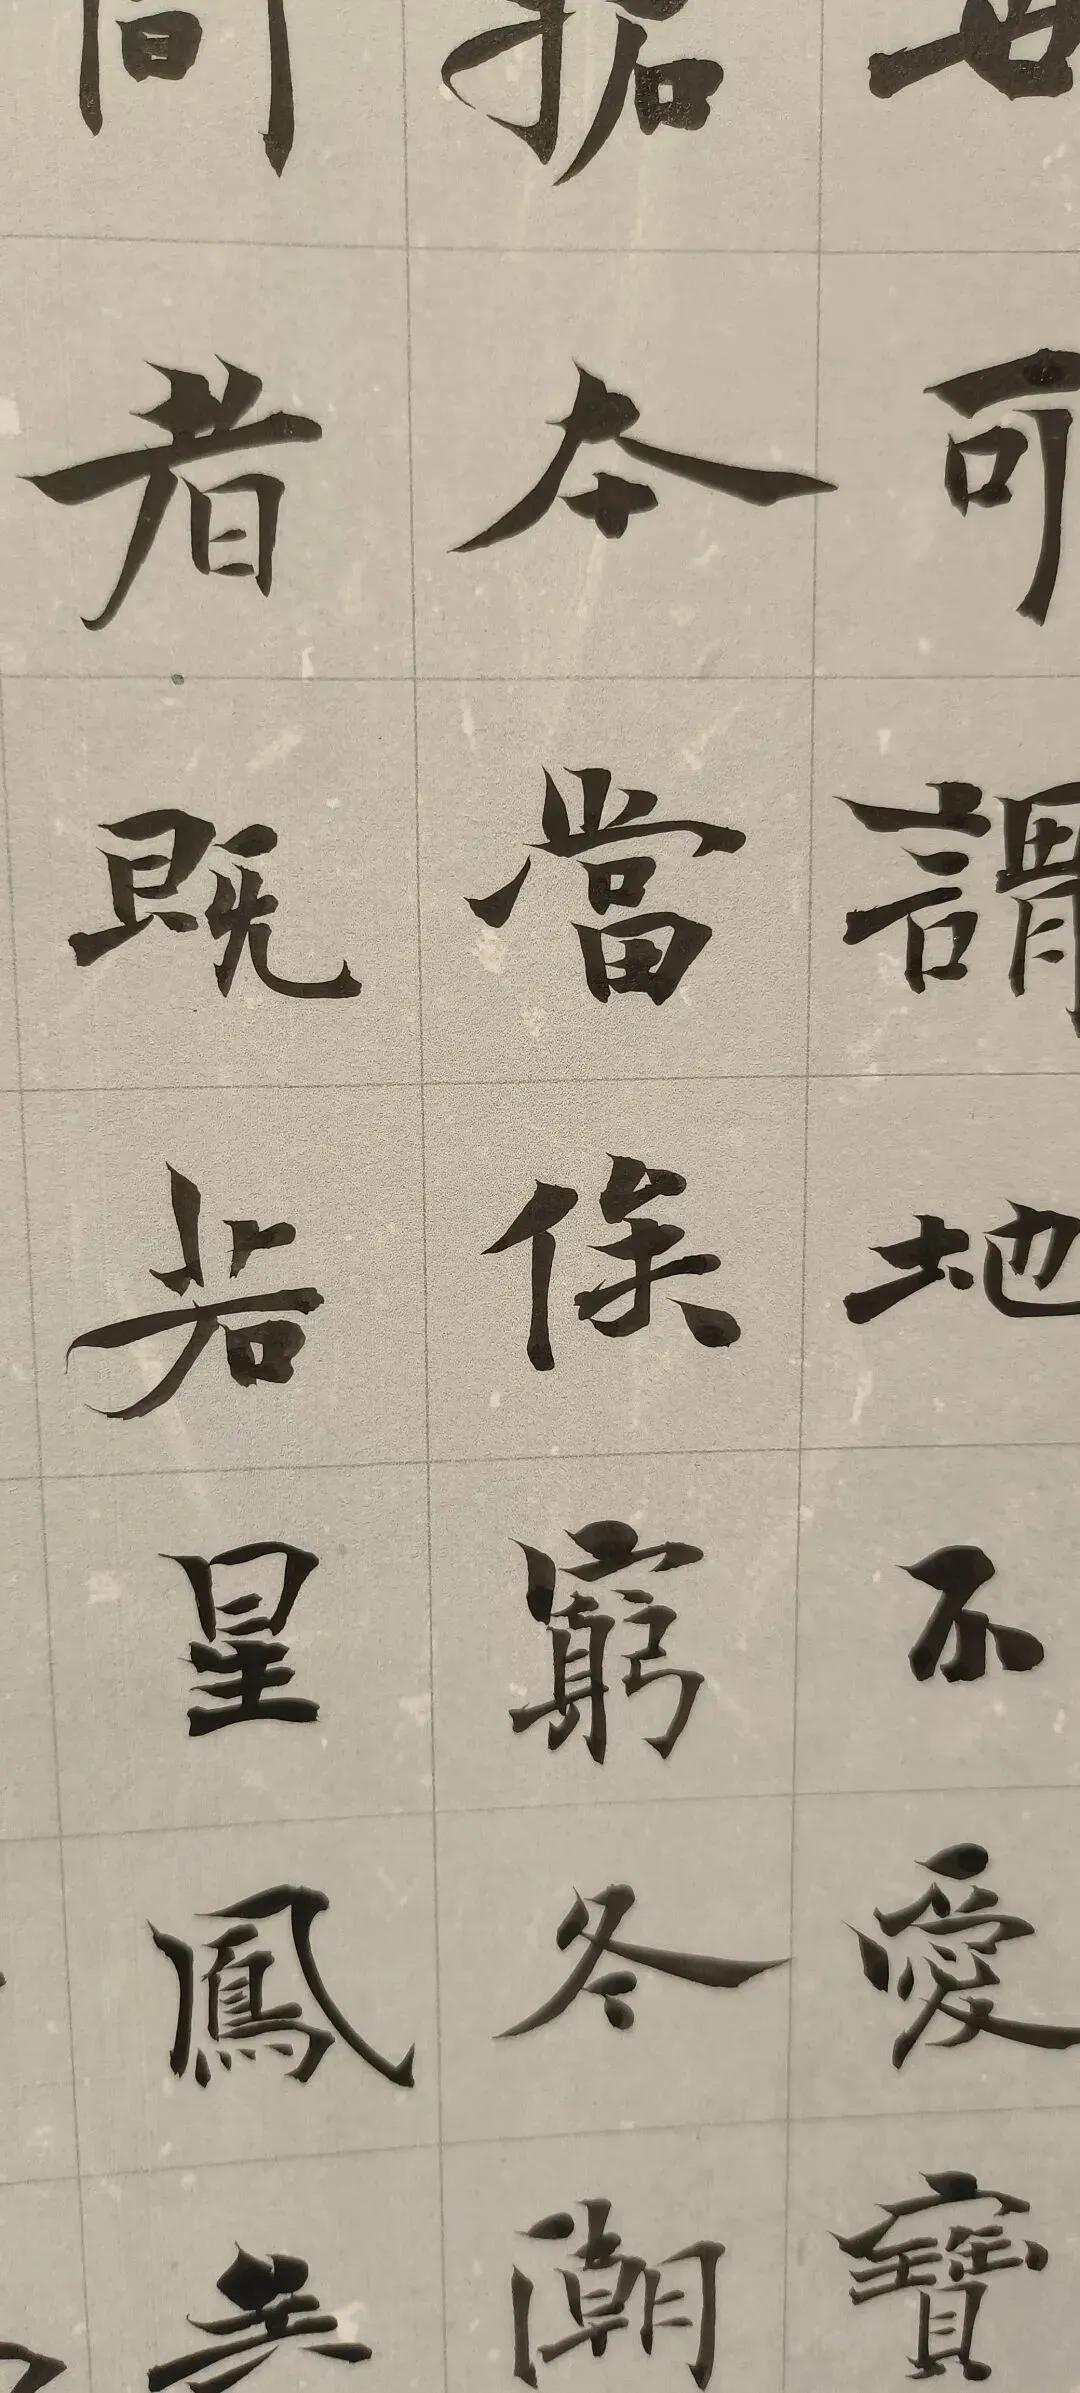 可謂地不愛寶
拓本當俟窮冬潮
間者既若星鳳